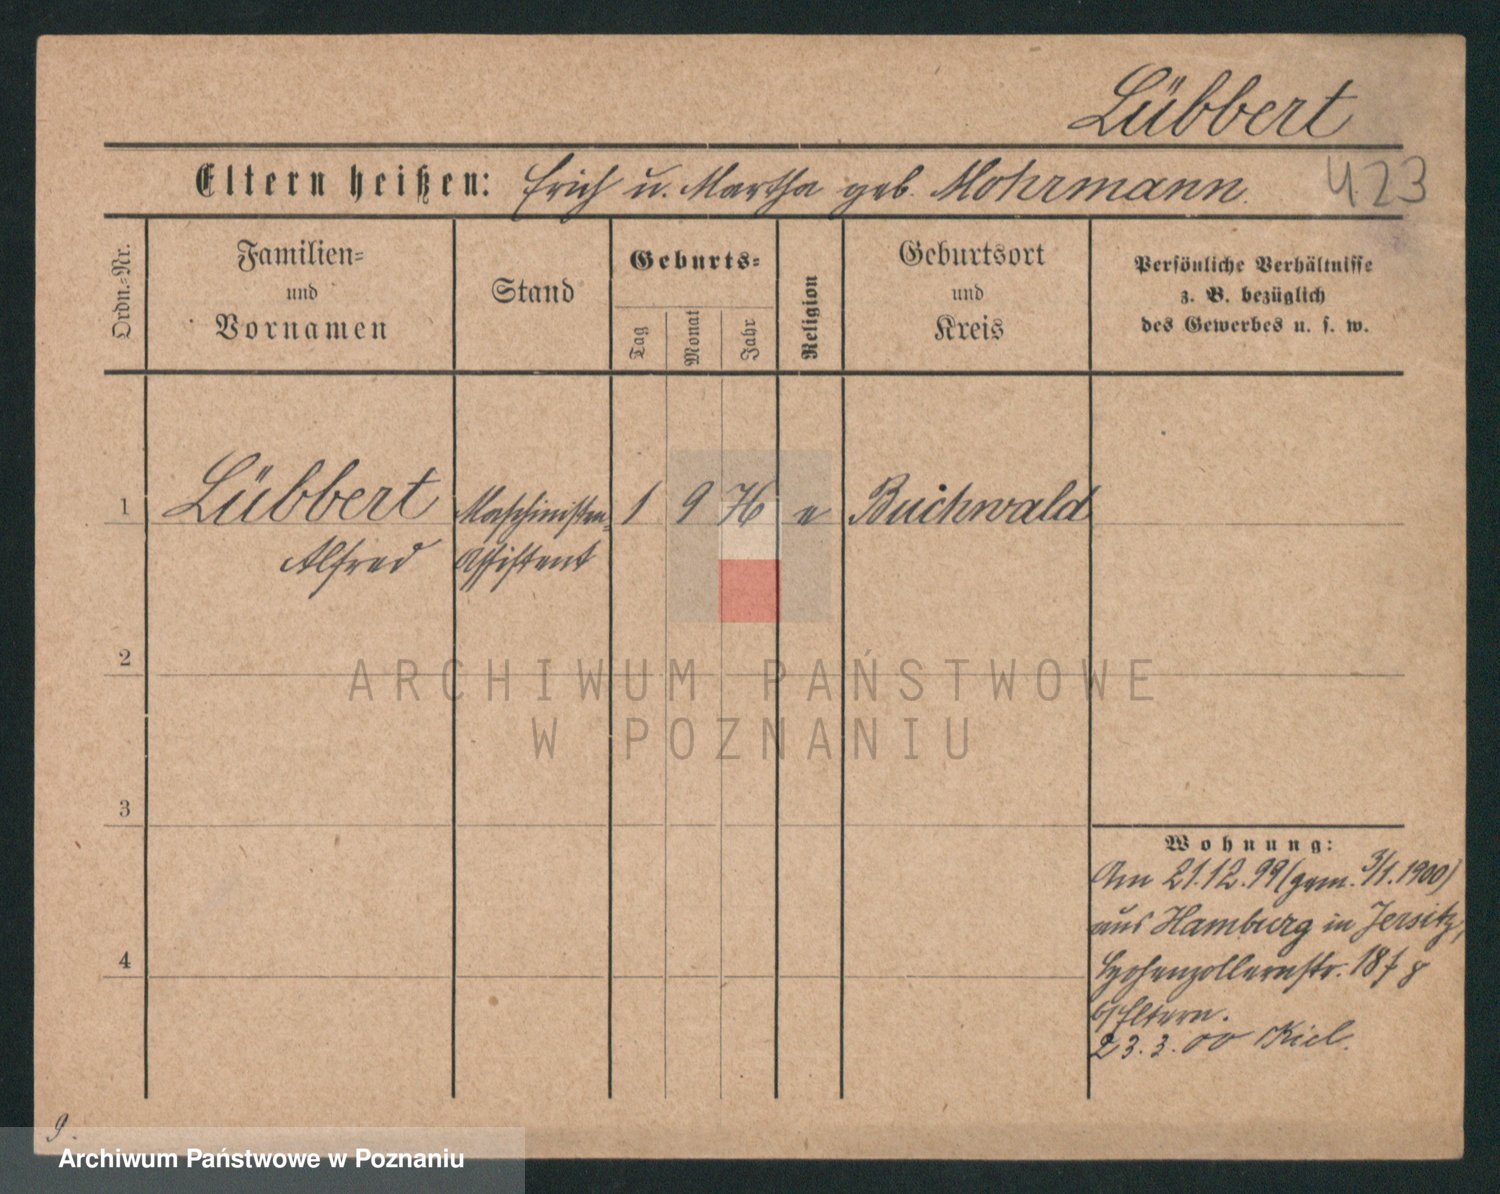 Lübbert
Eltern heißen: Erich u. Martha geb. Mohrmann.
423
Ordn.-Nr.
Familien-
und
Vornamen
Stand
Geburts-
Tag
Monat
Jahr
Religion
Geburtsort
und
Kreis
Persönliche Verhältnisse
z. B. bezüglich
des Gewerbes u. s. w.
1 Lübbert Maschinisten- 1 9 76 e Buchwald
Alfred Assistent
2
ARCHIWUM PAŃSTWOWE
W POZNANIU
3
Wohnung:
Am 21.12.99 (gem. 3/1.1900)
aus Hamburg in Jersitz,
4
Hohenzollernstr.
b/Eltern.
23.3.00 Kiel.
9.
Archiwum Państwowe w Poznaniu